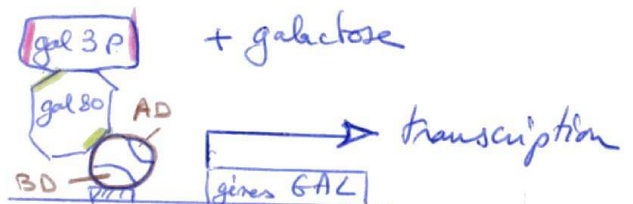 gal 3 p + galactose
gal 80
AD
transcription
BD
gènes GAL